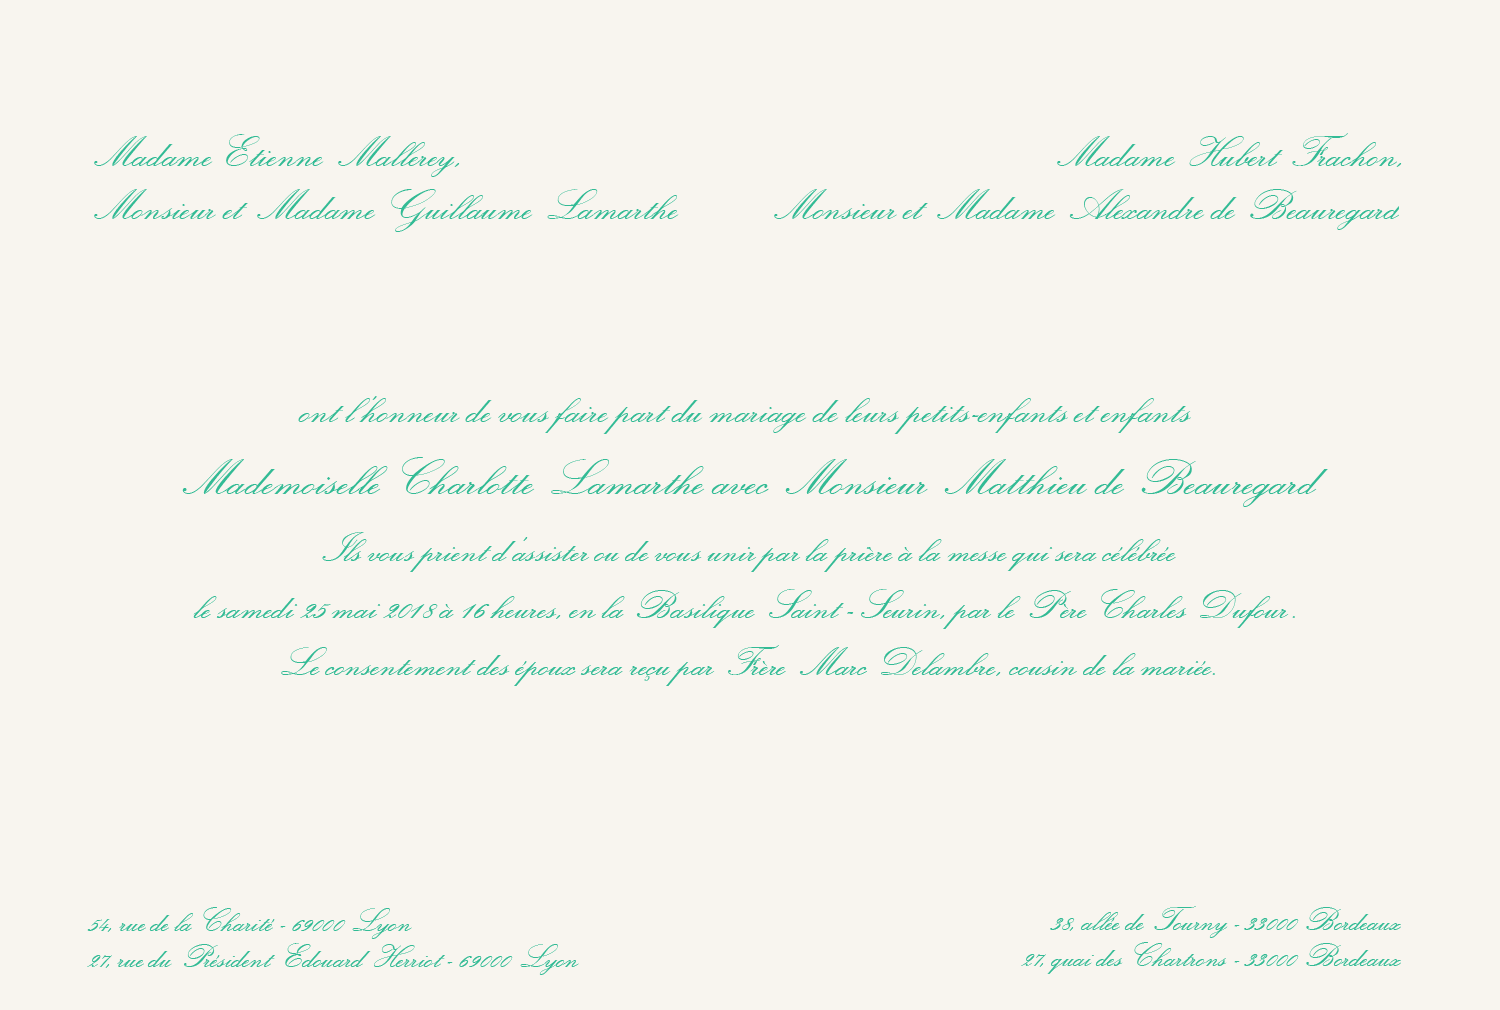 Madame Etienne Mallerey,
Monsieur et Madame Guillaume Lamarthe
Madame Hubert Frachon,
Monsieur et Madame Alexandre de Beauregard
ont l'honneur de vous faire part du mariage de leurs petits-enfants et enfants
Mademoiselle Charlotte Lamarthe avec Monsieur Matthieu de Beauregard
Ils vous prient d'assister ou de vous unir par la prière à la messe qui sera célébrée
le samedi 25 mai 2018 à 16 heures, en la Basilique Saint - Seurin, par le Père Charles Dufour.
Le consentement des époux sera reçu par Frère Marc Delambre, cousin de la mariée.
54, rue de la Charité - 69000 Lyon
27, rue du Président Edouard Herriot - 69000 Lyon
38, allée de Tourny - 33000 Bordeaux
27, quai des Chartrons - 33000 Bordeaux